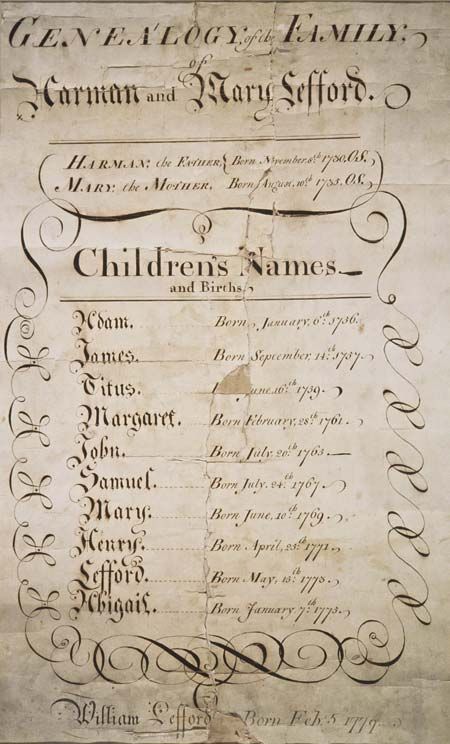 GENEALOGY of the FAMILY:
of
Harman and Mary Lefford.
HARMAN: the FATHER, Born November, 8th 1730. OS.
MARY: the MOTHER, Born August, 10th 1735. OS.
Children's Names
and Births.
Adam. Born January, 6th 1756.
James. Born September, 14th 1757.
Titus. June, 16th 1759.
Margaret. Born February, 28th 1761.
John. Born July, 20th 1763.
Samuel. Born July, 24th 1767.
Mary. Born June, 10th 1769.
Henry. Born April, 25th 1771.
Lefford. Born May, 15th 1773.
Abigail. Born January 7th 1775.
William Lefford Born Feb. 5 1779.